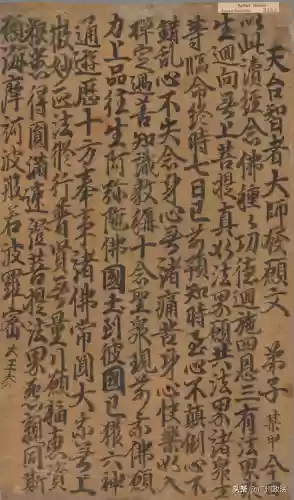 天台智者大師發願文 弟子某甲
以此讀經念佛種種功德迴施四恩三有法界
生迴向无上菩提真如法界願共法界諸衆
等臨命終時七日已前預知時至心不顛倒心不
錯亂心不失念身心无諸痛苦身心快樂如入
禪定遇善知識教稱十念聖衆現前承佛願
力上品往生阿彌陀佛國土到彼國已獲六神
通遊歷十方奉事諸佛常聞大乘无上
微妙正法修行普賢无量行願福惠資
糧悉得圓滿速證菩提法界怨親同斯
願海摩訶波般若波羅蜜